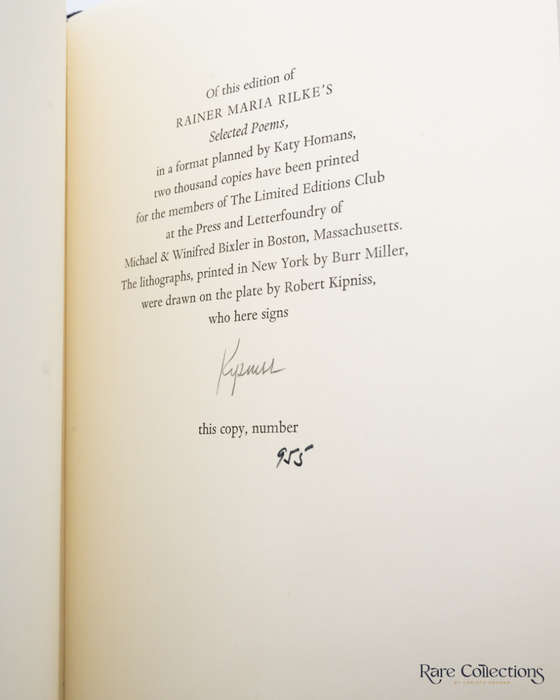 Of this edition of
RAINER MARIA RILKE'S
Selected Poems,
in a format planned by Katy Homans,
two thousand copies have been printed
for the members of The Limited Editions Club
at the Press and Letterfoundry of
Michael & Winifred Bixler in Boston, Massachusetts.
The lithographs, printed in New York by Burr Miller,
were drawn on the plate by Robert Kipniss,
who here signs
Kipniss
this copy, number
955
Rare Collections